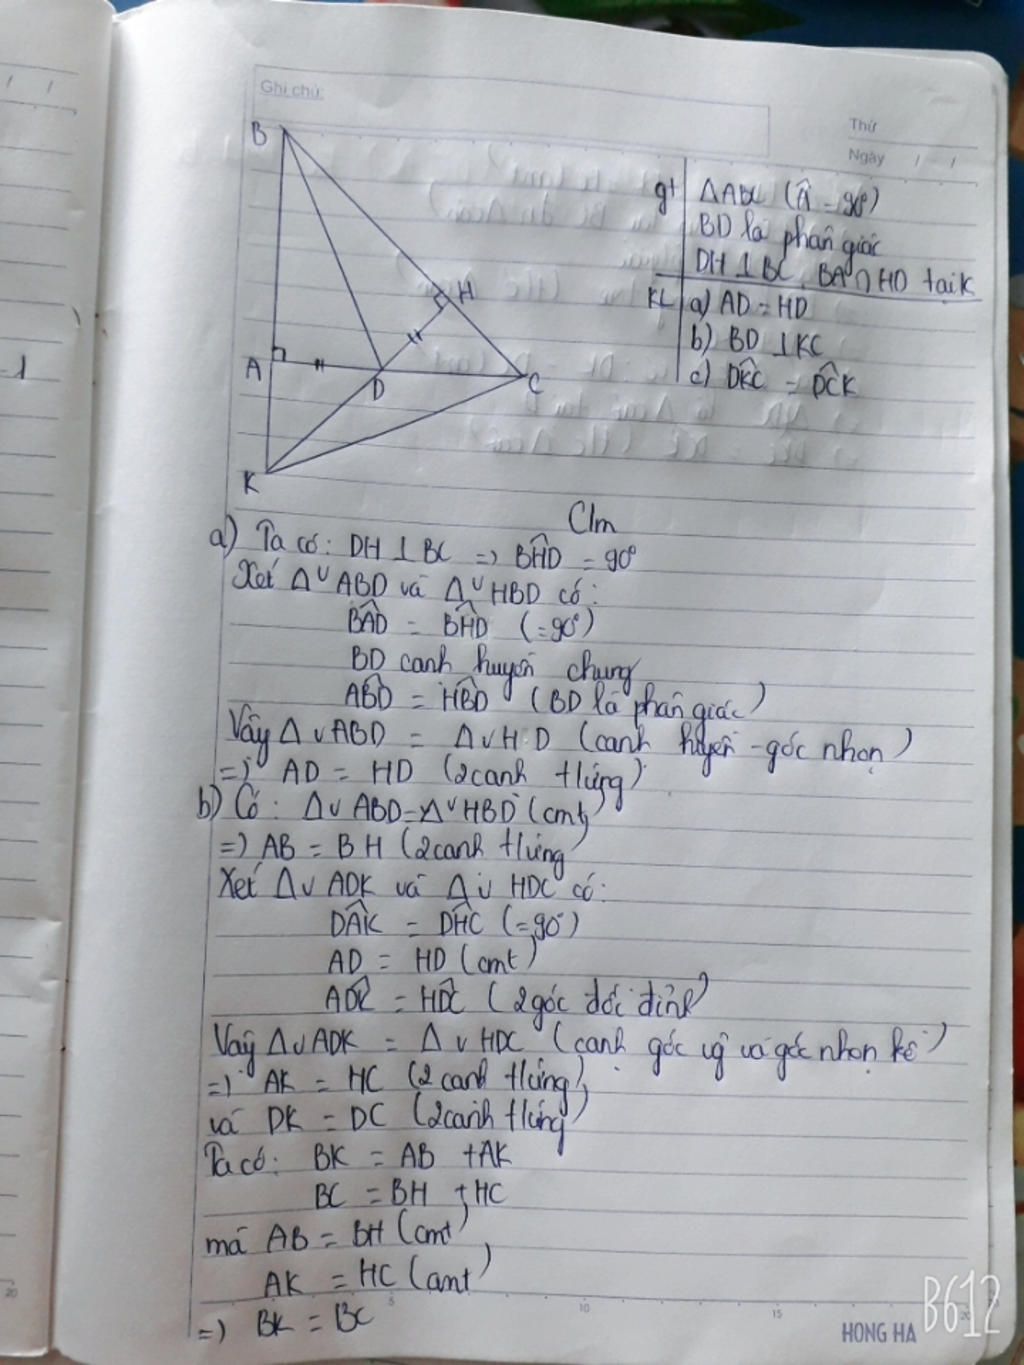 Ghi chú:
Thứ
Ngày / /
B
H
A
D
C
K
gt ΔABC (Â = 90°)
BD là phân giác
DH ⊥ BC, BA ∩ HD tại K
KL a) AD = HD
b) BD ⊥ KC
c) DK̂C = DĈK
Clm
a) Ta có: DH ⊥ BC => BĤD = 90°
Xét Δv ABD và Δv HBD có:
BÂD = BĤD (=90°)
BD canh huyền chung
AB̂D = HB̂D (BD là phân giác)
Vậy Δv ABD = Δv H D (canh huyền - góc nhọn)
=> AD = HD (2 canh tứng)
b) Có: Δv ABD = Δv HBD (cmt)
=> AB = BH (2 canh tứng
Xét Δv ADK và Δv HDC có:
DÂK = DĤC (=90°)
AD = HD (cmt)
AD̂K = HD̂C (2 góc đối đỉnh)
Vậy Δv ADK = Δv HDC (canh góc vg và góc nhọn kề)
=> AK = HC (2 canh tứng)
và DK = DC (2 canh tứng)
Ta có: BK = AB + AK
BC = BH + HC
mà AB = BH (cmt)
AK = HC (cmt)
=> BK = BC
20
5
10
15
HONG HA
B612
-1